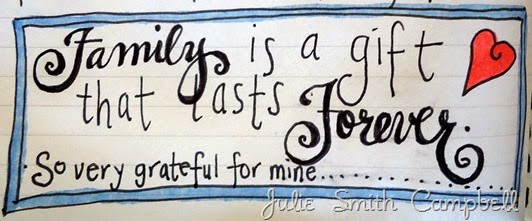 Family is a gift
that lasts Forever.
So very grateful for mine..............
Julie Smith Campbell